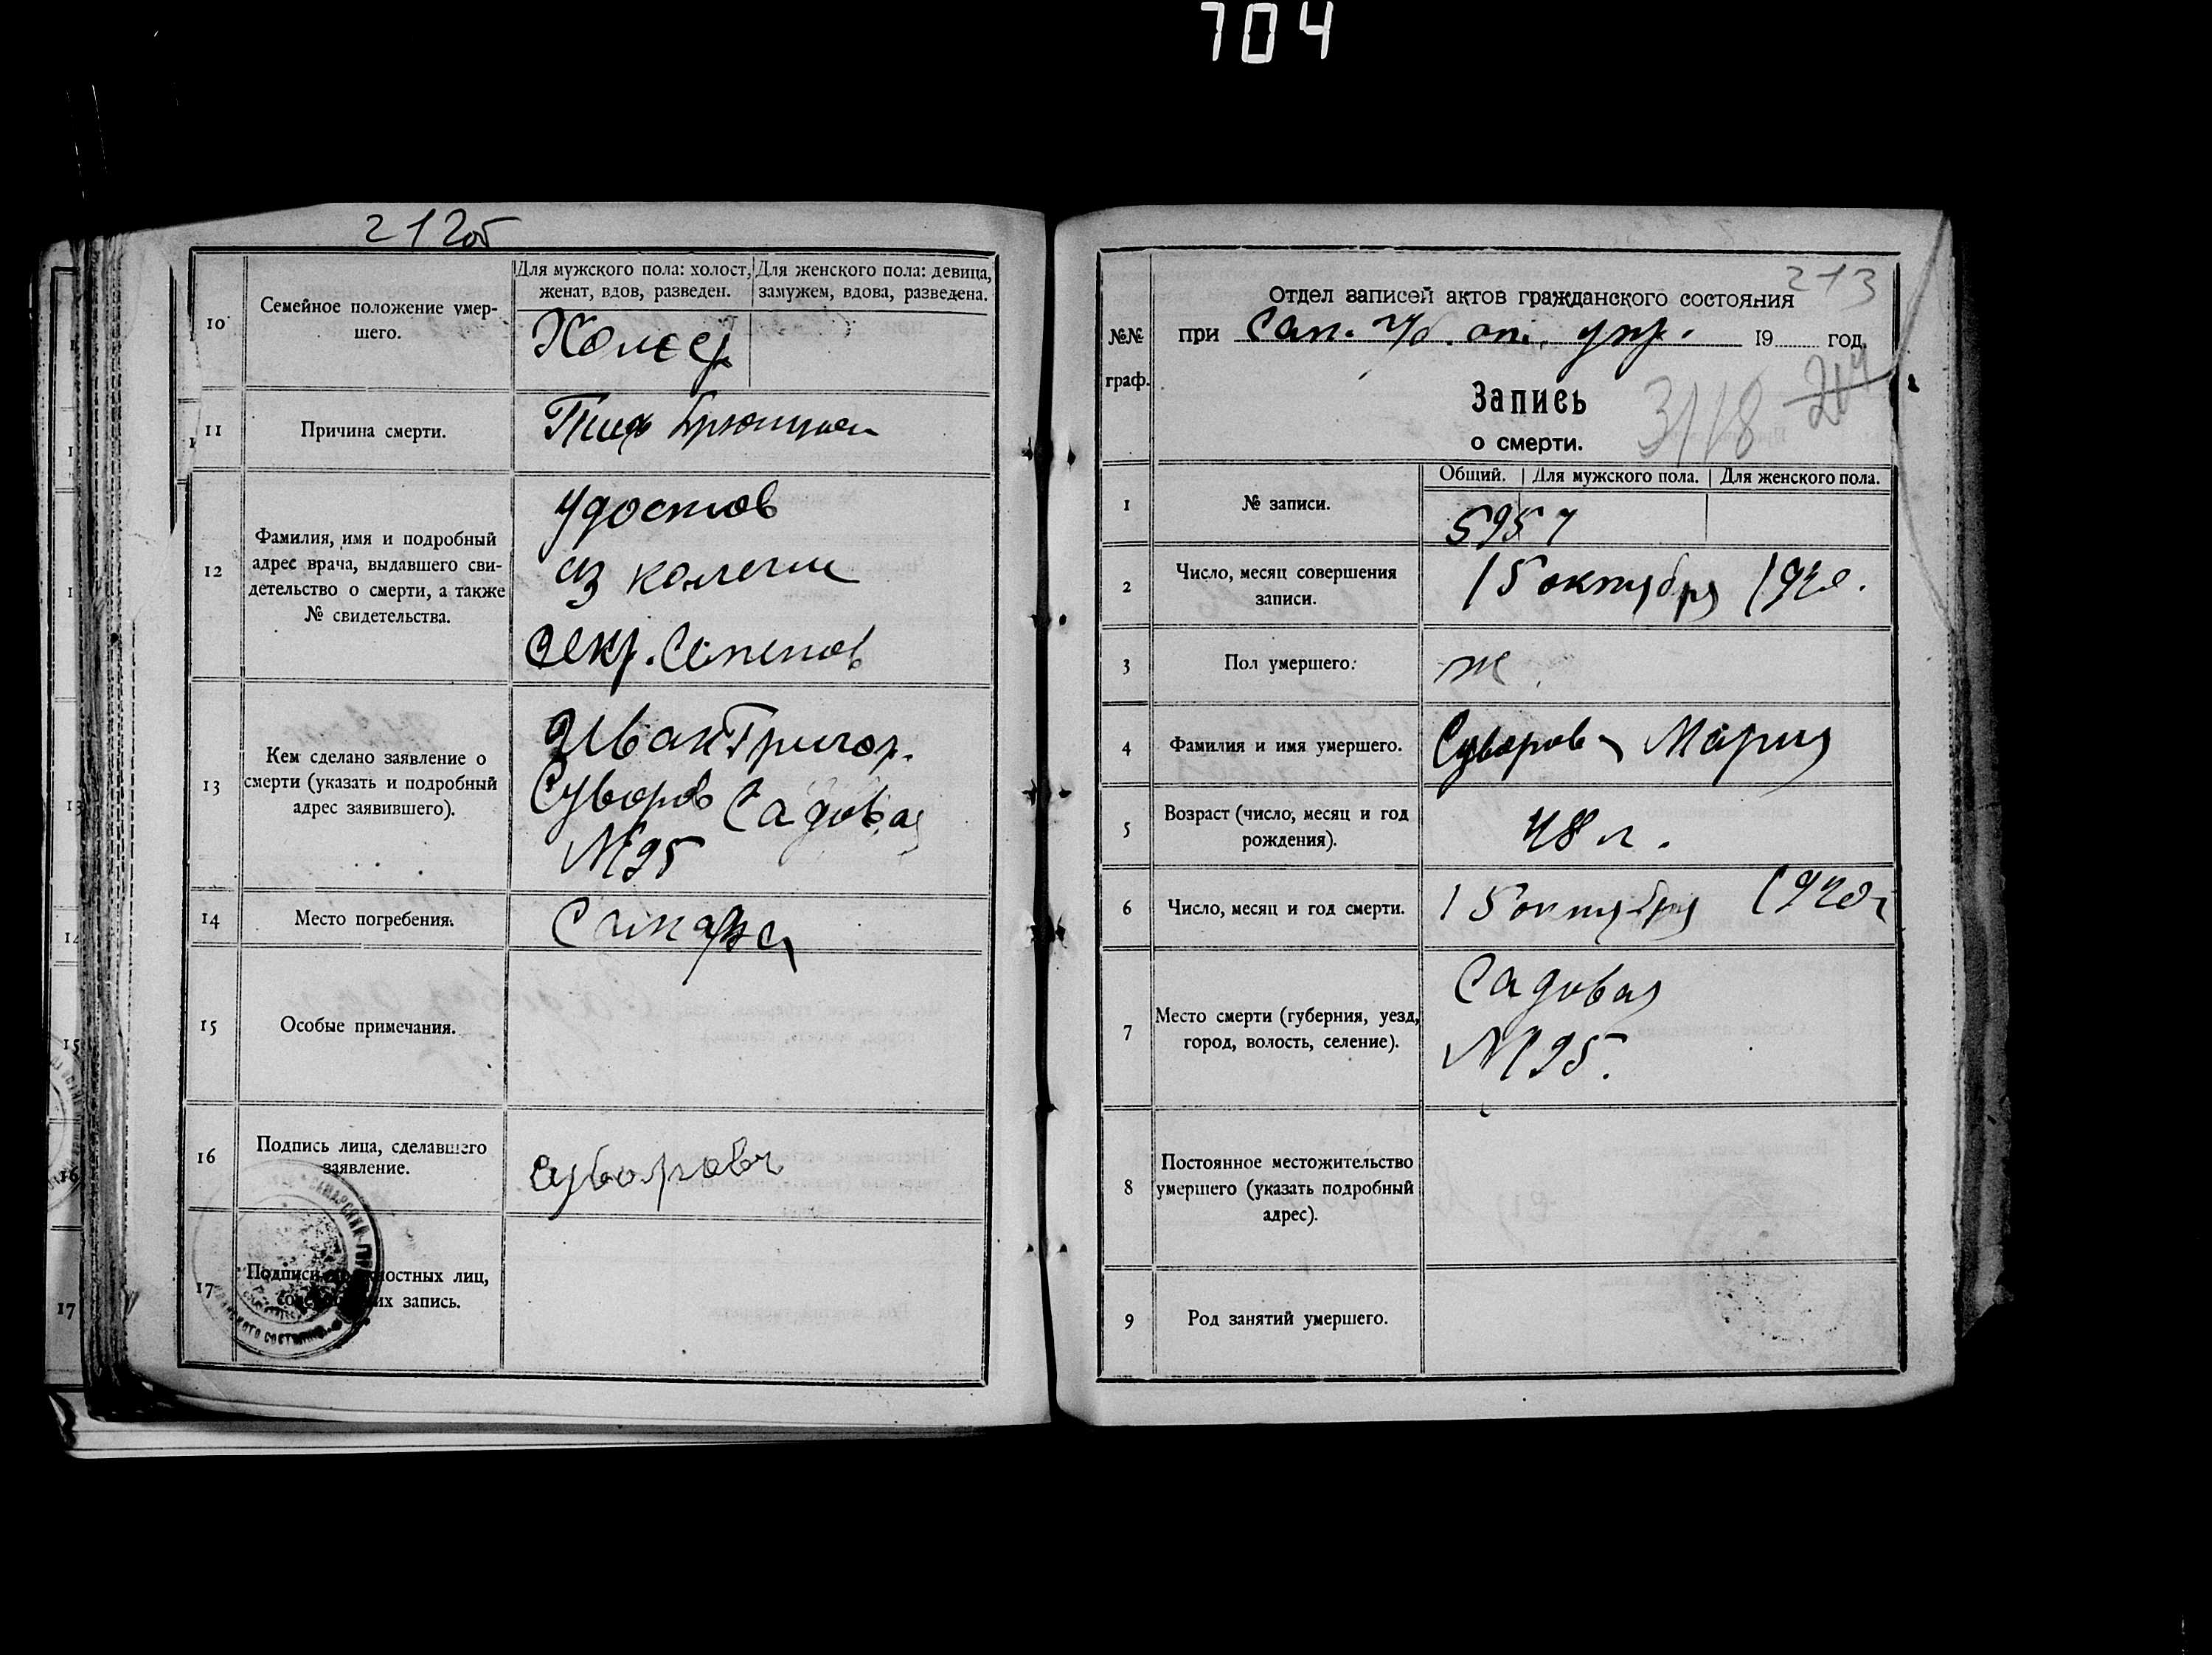 704
212об
10
Семейное положение умер-
шего.
Для мужского пола: холост,
женат, вдов, разведен.
Для женского пола: девица,
замужем, вдова, разведена.
11
Причина смерти.
Тиф брюшной
12
Фамилия, имя и подробный
адрес врача, выдавшего сви-
детельство о смерти, а также
№ свидетельства.
Удостов
из
секр.
13
Кем сделано заявление о
смерти (указать и подробный
адрес заявившего).
Иван Григор.
Суворов Садовая
№95
14
Место погребения.
Самара
15
Особые примечания.
16
Подпись лица, сделавшего
заявление.
Суворов
17
Подписи должностных лиц,
их запись.
213
Отдел записей актов гражданского состояния
№№
граф.
при Сам. г/о. от. упр. 19 год.
Запись
о смерти.
3118
204
Общий. Для мужского пола. Для женского пола.
1
№ записи.
5957
2
Число, месяц совершения
записи.
15 октября 192
3
Пол умершего.
ж
4
Фамилия и имя умершего.
Суворова Мария
5
Возраст (число, месяц и год
рождения).
48 л.
6
Число, месяц и год смерти.
15 октября 192
7
Место смерти (губерния, уезд,
город, волость, селение).
Садовая
№95.
8
Постоянное местожительство
умершего (указать подробный
адрес).
9
Род занятий умершего.